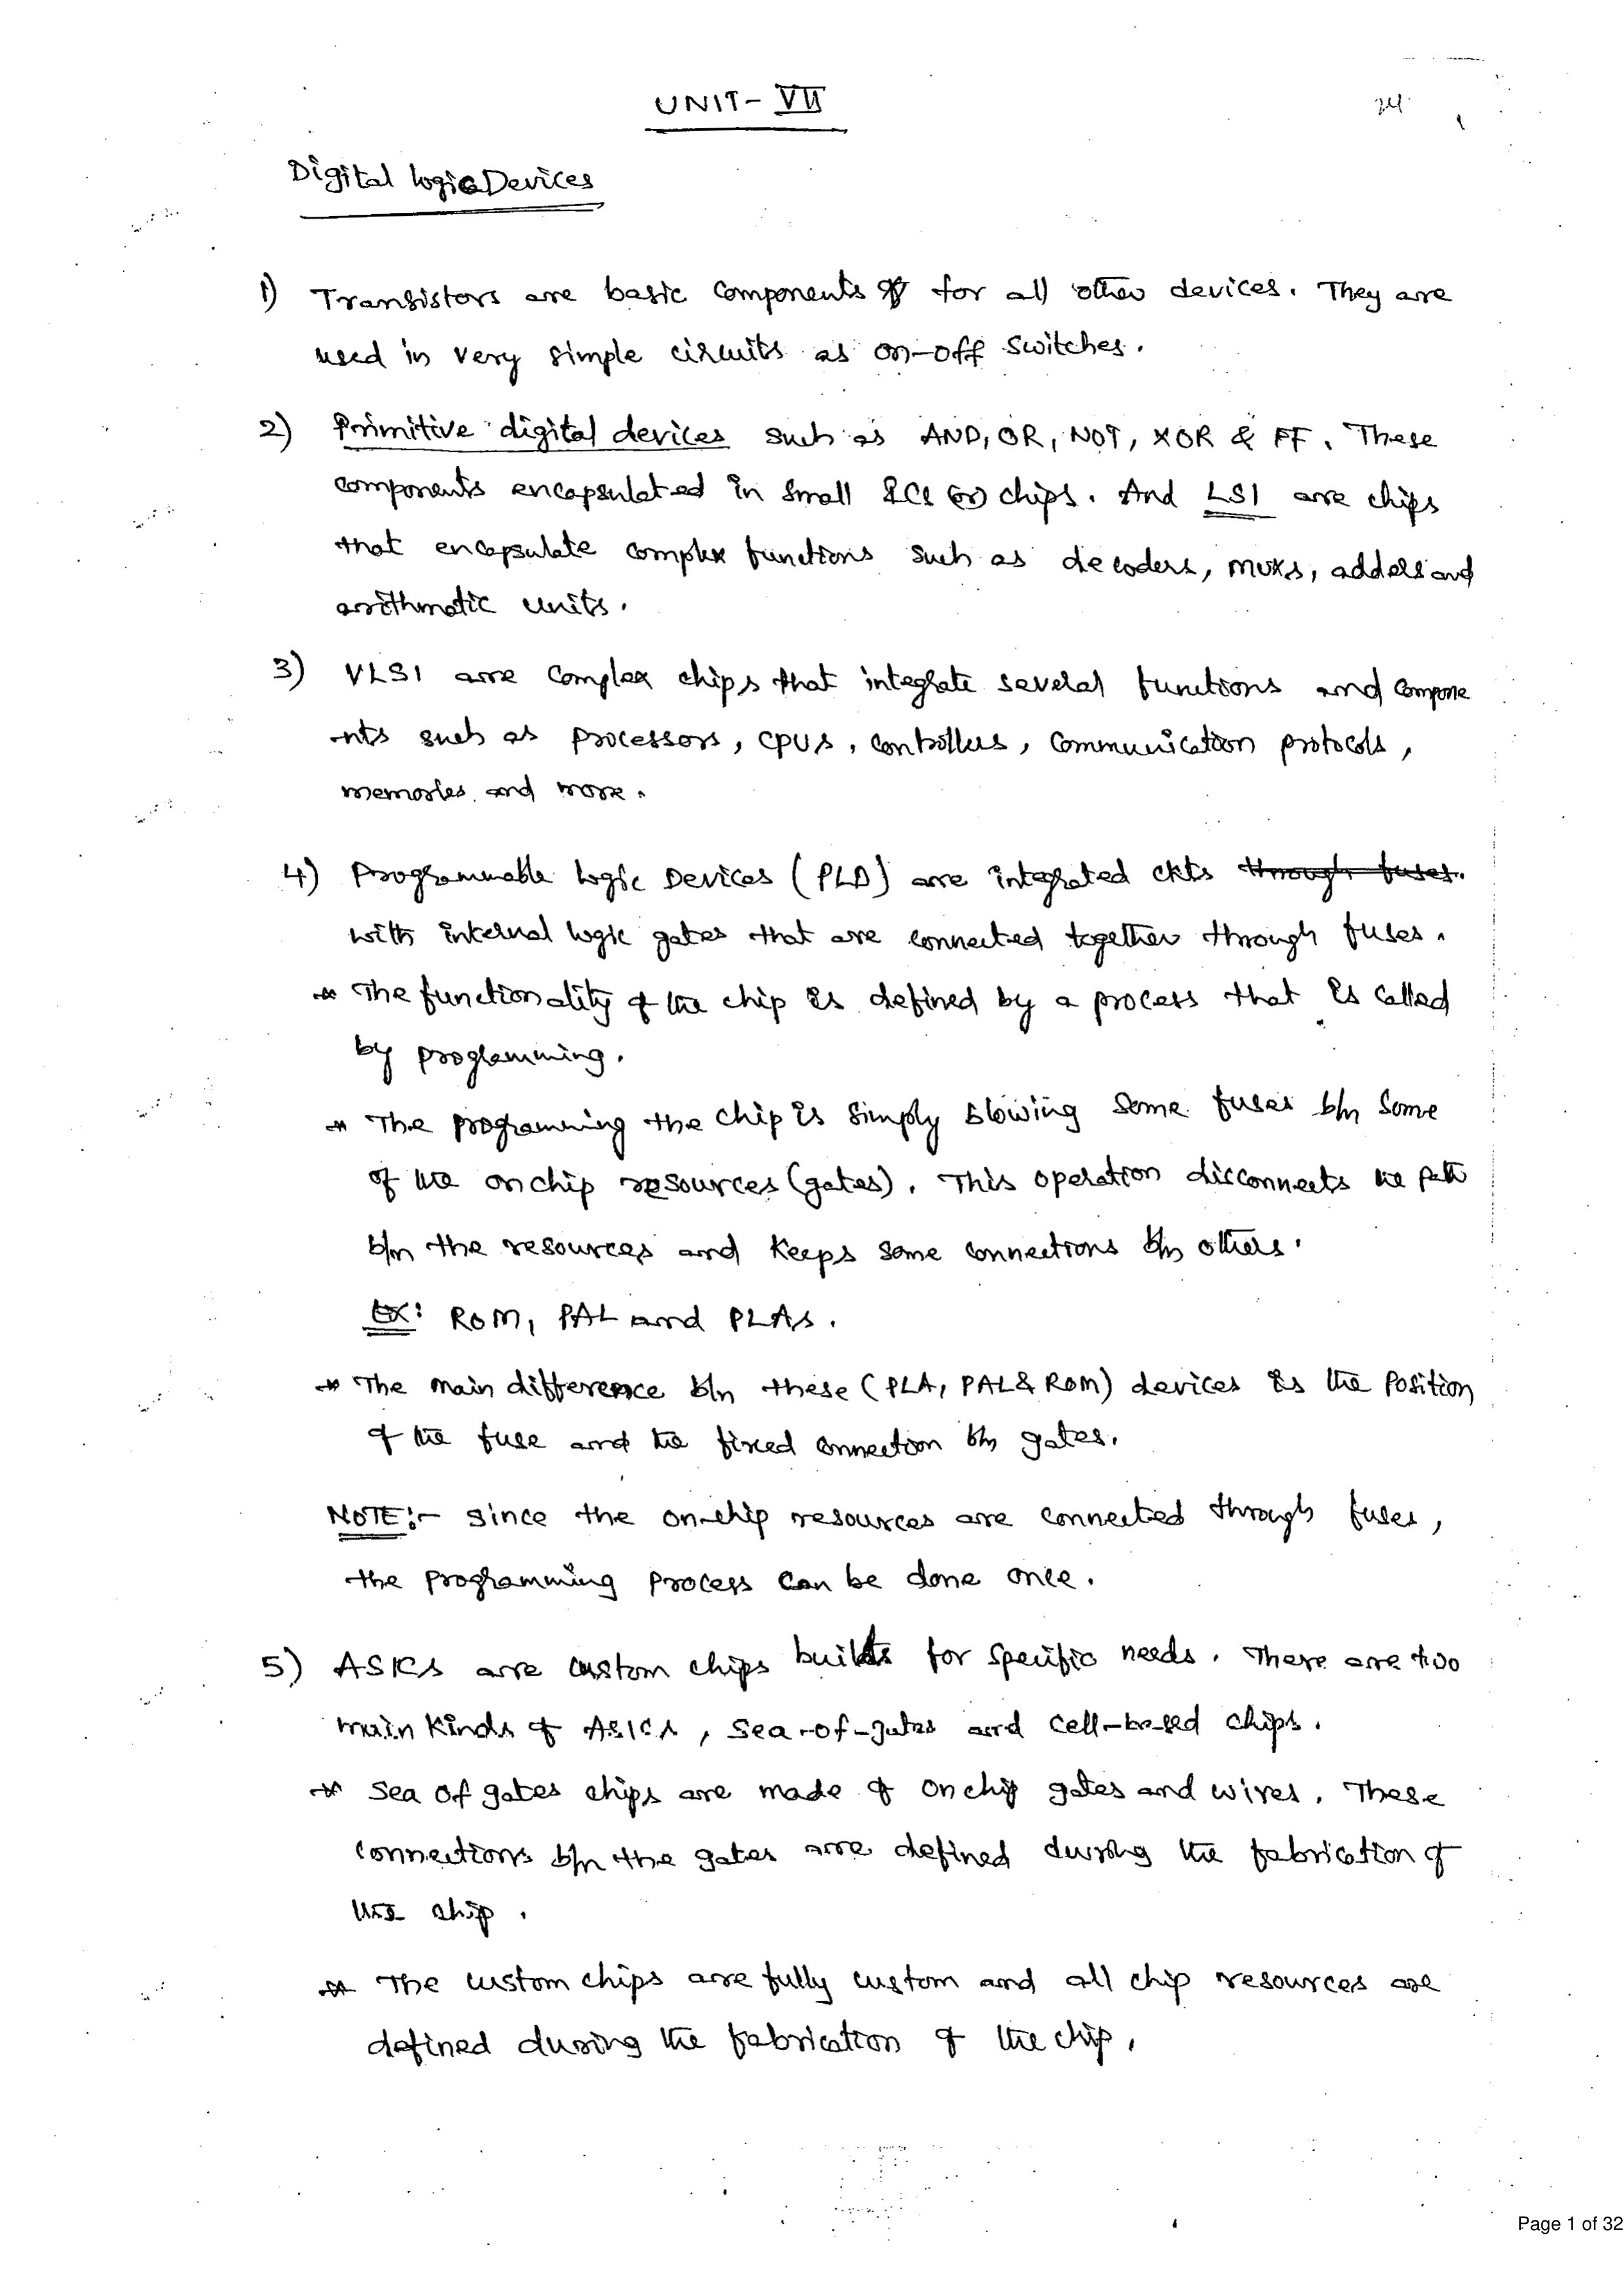 UNIT - VII
Digital Logic Devices
1) Transistors are basic components for all other devices. They are
used in very simple circuits as on-off switches.
2) Primitive digital devices such as AND, OR, NOT, XOR & FF. These
components encapsulated in small ICs (or) chips. And LSI are chips
that encapsulate complex functions such as decoders, muxs, adders and
arithmatic units.
3) VLSI are complex chips that integrate several functions and compone
-nts such as processors, CPUs, controllers, communication protocols,
memories and more.
4) Programmable Logic Devices (PLD) are integrated ckts through fuses.
with internal logic gates that are connected together through fuses.
* The functionality of the chip is defined by a process that is called
by programming.
* The programming the chip is simply blowing some fuses b/n some
of the onchip resources (gates). This operation disconnects the path
b/n the resources and keeps some connections b/n others.
Ex: ROM, PAL and PLAs.
* The main difference b/n these (PLA, PAL & ROM) devices is the position
of the fuse and the fixed connection b/n gates.
NOTE:- since the on-chip resources are connected through fuses,
the programming process can be done once.
5) ASICs are custom chips builts for specific needs. There are two
main kinds of ASICs, sea-of-gates and cell-based chips.
* Sea of gates chips are made of onchip gates and wires. These
connections b/n the gates are defined during the fabrication of
the chip.
* The custom chips are fully custom and all chip resources are
defined during the fabrication of the chip.
Page 1 of 32